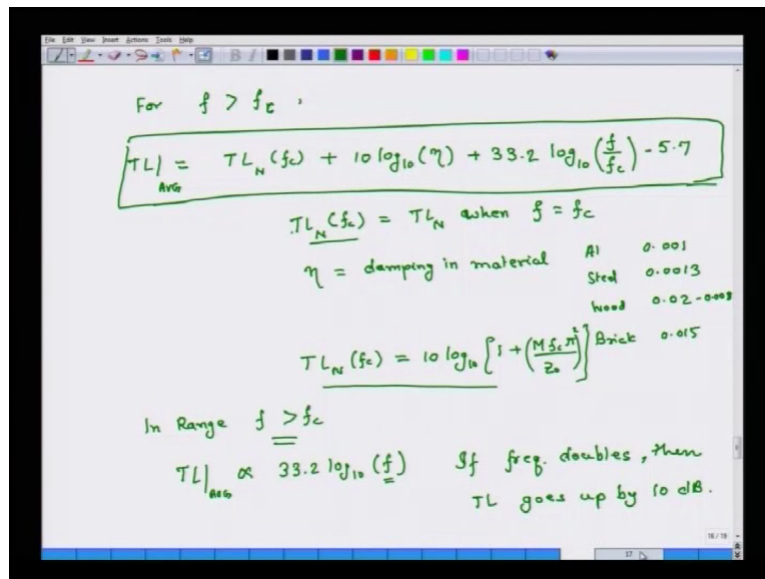 File Edit View Insert Actions Tools Help
For f > fc ,
TL|AVG = TL_N (fc) + 10 log10 (η) + 33.2 log10 (f/fc) - 5.7
TL_N (fc) = TL_N when f = fc
η = damping in material
Al 0.001
Steel 0.0013
Wood 0.02 - 0.008
Brick 0.015
TL_N (fc) = 10 log10 [1 + (M fc π / Z0)²]
In Range f > fc
TL|AVG ∝ 33.2 log10 (f)
If freq. doubles, then
TL goes up by 10 dB.
16 / 19
17